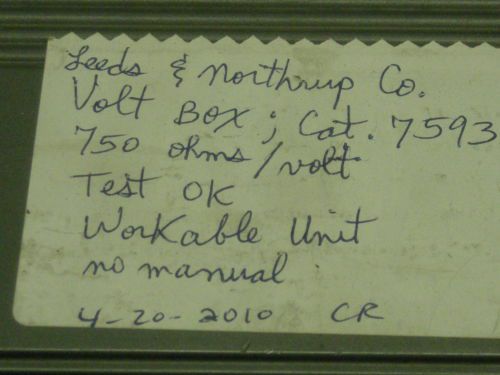 Leeds & Northrup Co.
Volt Box; Cat. 7593
750 ohms/volt
Test OK
Workable Unit
no manual
4-20-2010 CR